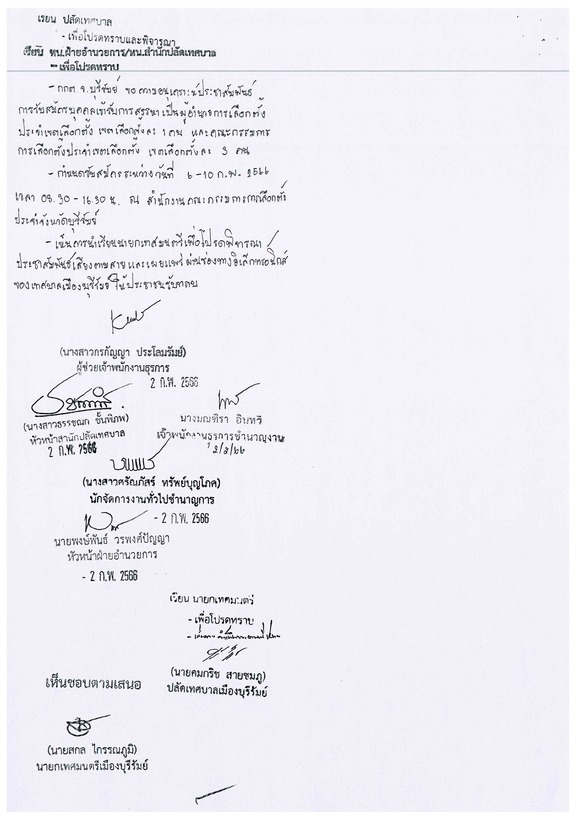 เรียน ปลัดเทศบาล
- เพื่อโปรดทราบและพิจารณา
เรียน หน.ฝ่ายอำนวยการ/หน.สำนักปลัดเทศบาล
- เพื่อโปรดทราบ
- กกต.จ.บุรีรัมย์ ขอความอนุเคราะห์ประชาสัมพันธ์
การรับสมัครบุคคลเข้ารับการสรรหาเป็นผู้อำนวยการเลือกตั้ง
ประจำเขตเลือกตั้ง เขตเลือกตั้งละ 1 คน และคณะกรรมการ
การเลือกตั้งประจำเขตเลือกตั้ง เขตเลือกตั้งละ 3 คน
- กำหนดรับสมัครระหว่างวันที่ 6-10 ก.พ. 2566
เวลา 08.30 - 16.30 น. ณ สำนักงานคณะกรรมการการเลือกตั้ง
ประจำจังหวัดบุรีรัมย์
- เห็นควรนำเรียนนายกเทศมนตรีเพื่อโปรดพิจารณา
ประชาสัมพันธ์เสียงตามสาย และเผยแพร่ผ่านช่องทางอิเล็กทรอนิกส์
ของเทศบาลเมืองบุรีรัมย์ ให้ประชาชนรับทราบ
(นางสาวกรกัญญา ประโลมรัมย์)
ผู้ช่วยเจ้าพนักงานธุรการ
2 ก.พ. 2566
(นางสาวธรรชณก ขันทิภพ)
หัวหน้าสำนักปลัดเทศบาล
2 ก.พ. 2566
นางมณฑิรา อินทวิ
เจ้าพนักงานธุรการชำนาญงาน
2/2/66
(นางสาวศรัณภัสร์ ทรัพย์บุญโภค)
นักจัดการงานทั่วไปชำนาญการ
- 2 ก.พ. 2566
นายพงษ์พันธ์ วรพงศ์ปัญญา
หัวหน้าฝ่ายอำนวยการ
- 2 ก.พ. 2566
เรียน นายกเทศมนตรี
- เพื่อโปรดทราบ
(นายคมกริช สายชมภู)
ปลัดเทศบาลเมืองบุรีรัมย์
เห็นชอบตามเสนอ
(นายสกล ไกรรณภูมิ)
นายกเทศมนตรีเมืองบุรีรัมย์